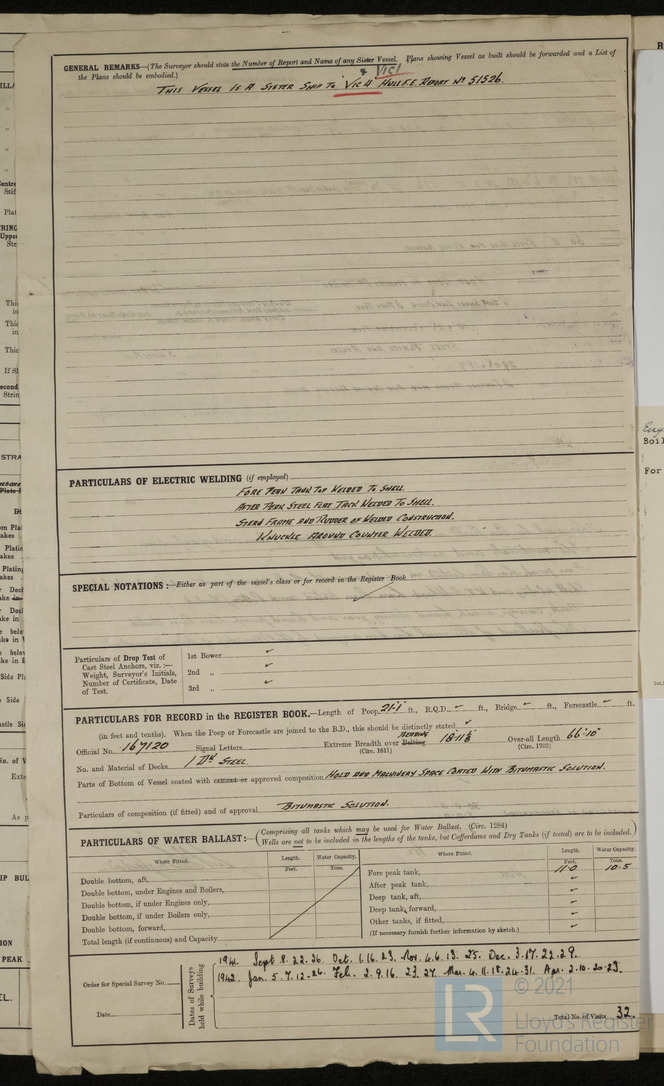 GENERAL REMARKS—(The Surveyor should state the Number of Report and Name of any Sister Vessel. Plans showing Vessel as built should be forwarded and a List of
the Plans should be embodied.)
& VIC 1
THIS VESSEL IS A SISTER SHIP TO "VIC 4" HULL F.E. REPORT No 51526.
PARTICULARS OF ELECTRIC WELDING (if employed)
FORE PEAK TANK TOP WELDED TO SHELL.
AFTER PEAK STEEL FLAT TACK WELDED TO SHELL.
STERN FRAME AND RUDDER OF WELDED CONSTRUCTION.
KNUCKLE AROUND COUNTER WELDED.
SPECIAL NOTATIONS:—Either as part of the vessel's class or for record in the Register Book
Particulars of Drop Test of
Cast Steel Anchors, viz. :—
Weight, Surveyor's Initials,
Number of Certificate, Date
of Test.
1st Bower
2nd „
3rd „
PARTICULARS FOR RECORD in the REGISTER BOOK.—Length of Poop 21'-1" ft., R.Q.D. ft., Bridge ft., Forecastle ft.
(in feet and tenths). When the Poop or Forecastle are joined to the B.D., this should be distinctly stated
Official No. 167120 Signal Letters Extreme Breadth over Belting (Circ. 1611) Over-all Length 66'-10" (Circ. 1703)
No. and Material of Decks 1 Dk STEEL
Parts of Bottom of Vessel coated with cement or approved composition HOLD AND MACHINERY SPACE COATED WITH BITUMASTIC SOLUTION.
Particulars of composition (if fitted) and of approval BITUMASTIC SOLUTION.
PARTICULARS OF WATER BALLAST:—(Comprising all tanks which may be used for Water Ballast. (Circ. 1284)
Wells are not to be included in the lengths of the tanks, but Cofferdams and Dry Tanks (if tested) are to be included.)
Where Fitted. Length. Water Capacity. Where Fitted. Length. Water Capacity.
Feet. Tons. Feet. Tons.
Double bottom, aft, Fore peak tank, 11.0 10.5
Double bottom, under Engines and Boilers, After peak tank,
Double bottom, if under Engines only, Deep tank, aft,
Double bottom, if under Boilers only, Deep tank, forward,
Double bottom, forward, Other tanks, if fitted,
Total length (if continuous) and Capacity (If necessary furnish further information by sketch.)
Order for Special Survey No.
Date
Dates of Surveys held while building
1941. Sept. 8. 22. 26. Oct. 1. 16. 23. Nov. 4. 6. 13. 25. Dec. 3. 17. 22. 29.
1942. Jan. 5. 7. 12. 26. Feb. 2. 9. 16. 23. 27. Mar. 4. 11. 18. 24. 31. Apr. 2. 10. 20. 23.
Total No. of Visits 32.
LR
© 2021
Lloyd's Register
Foundation